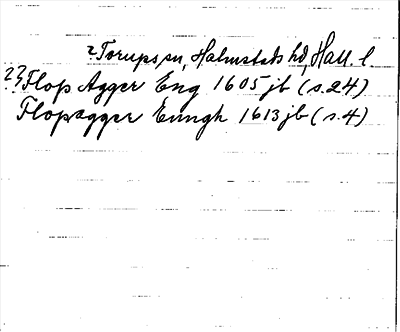 ? Torups sn, Halmstads hd, Hall. l.
?? Flop Agger Eng 1605 jb (s. 24)
Flopagger Eungh 1613 jb (s. 4)